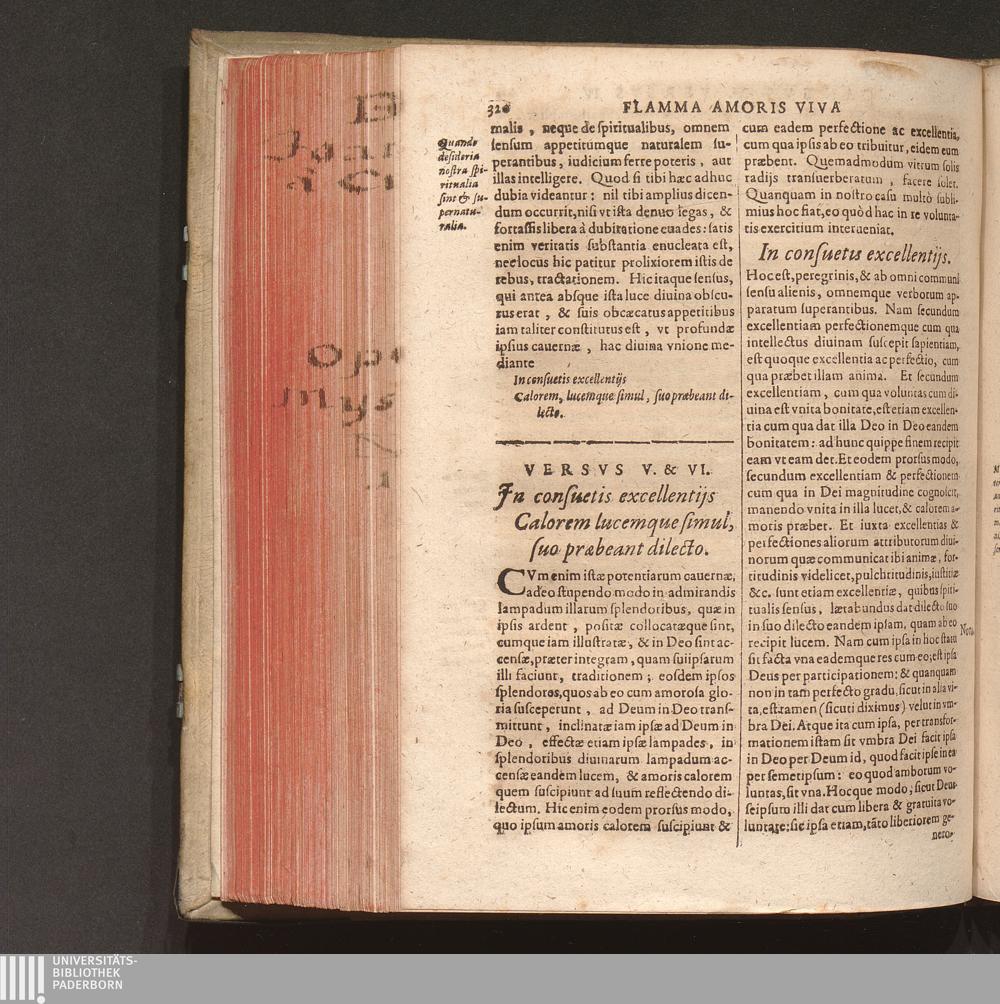 320
FLAMMA AMORIS VIVA
Quando
desideria
nostra spi-
ritualia
sint & su-
pernatu-
ralia.
malis, neque de spiritualibus, omnem
sensum appetitúmque naturalem su-
perantibus, iudicium ferre poteris, aut
illas intelligere. Quod si tibi hæc adhuc
dubia videantur: nil tibi amplius dicen-
dum occurrit, nisi vt ista denuo legas, &
fortassis libera à dubitatione euades: satis
enim veritatis substantia enucleata est,
nec locus hic patitur prolixiorem istis de
rebus, tractationem. Hic itaque sensus,
qui antea absque ista luce diuina obscu-
rus erat, & suis obcæcatus appetitibus
iam taliter constitutus est, vt profundæ
ipsius cauernæ, hac diuina vnione me-
diante
In consuetis excellentijs
Calorem, lucemque simul, suo præbeant di-
lecto.
VERSVS V. & VI.
In consuetis excellentijs
Calorem lucemque simul,
suo præbeant dilecto.
CVm enim istæ potentiarum cauernæ,
adeo stupendo modo in admirandis
lampadum illarum splendoribus, quæ in
ipsis ardent, positæ collocatæque sint,
cumque iam illustratæ, & in Deo sint ac-
censæ, præter integram, quam sui ipsarum
illi faciunt, traditionem; eosdem ipsos
splendores, quos ab eo cum amorosa glo-
ria susceperunt, ad Deum in Deo trans-
mittunt, inclinatæ iam ipsæ ad Deum in
Deo, effectæ etiam ipsæ lampades, in
splendoribus diuinarum lampadum ac-
censæ eandem lucem, & amoris calorem
quem suscipiunt ad suum reflectendo di-
lectum. Hic enim eodem prorsus modo,
quo ipsum amoris calorem suscipiunt &
cum eadem perfectione ac excellentia,
cum qua ipsis ab eo tribuitur, eidem eum
præbent. Quemadmodum vitrum solis
radijs transuerberatum, facere solet.
Quanquam in nostro casu multò subli-
mius hoc fiat, eo quòd hac in re volunta-
tis exercitium interueniat.
In consuetis excellentijs.
Hoc est, peregrinis, & ab omni communi
sensu alienis, omnemque verborum ap-
paratum superantibus. Nam secundum
excellentiam perfectionemque cum qua
intellectus diuinam suscepit sapientiam,
est quoque excellentia ac perfectio, cum
qua præbet illam anima. Et secundum
excellentiam, cum qua voluntas cum di-
uina est vnita bonitate, est etiam excellen-
tia cum qua dat illa Deo in Deo eandem
bonitatem: ad hunc quippe finem recipit
eam vt eam det. Et eodem prorsus modo,
secundum excellentiam & perfectionem
cum qua in Dei magnitudine cognoscit,
manendo vnita in illa lucet, & calorem a-
moris præbet. Et iuxta excellentias &
perfectiones aliorum attributorum diui-
norum quæ communicat ibi animæ, for-
titudinis videlicet, pulchritudinis, iustitiæ
&c. sunt etiam excellentiæ, quibus spiri-
tualis sensus, lætabundus dat dilecto suo
in suo dilecto eandem ipsam, quam ab eo
recipit lucem. Nam cum ipsa in hoc statu
Nota.
sit facta vna eademque res cum eo; est ipsa
Deus per participationem; & quanquam
non in tam perfecto gradu, sicut in alia vi-
ta, est tamen (sicuti diximus) velut in vm-
bra Dei. Atque ita cum ipsa, per transfor-
mationem istam sit vmbra Dei facit ipsa
in Deo per Deum id, quod facit ipse in ea
per semetipsum: eo quod amborum vo-
luntas, sit vna. Hocque modo, sicut Deus
seipsum illi dat cum libera & gratuita vo-
luntate: sic ipsa etiam, tãto liberiorem ge-
nero-
UNIVERSITÄTS-
BIBLIOTHEK
PADERBORN